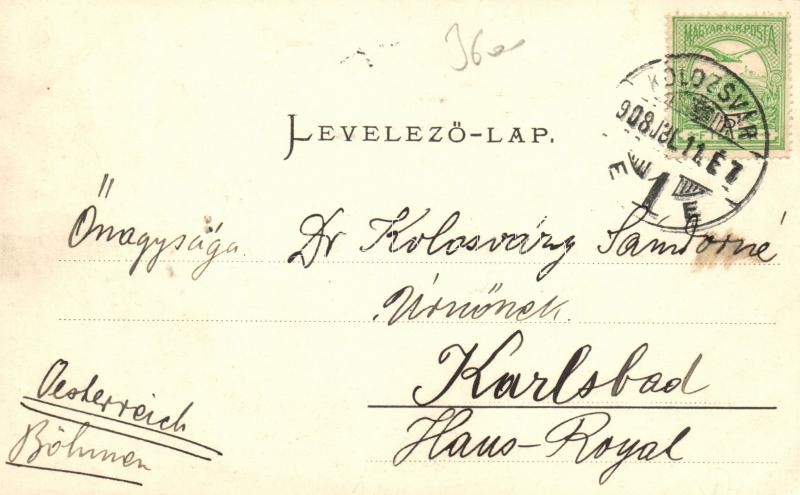 36
MAGYAR KIR. POSTA
KOLOZSVÁR
908 JUL. 11. É 7
E E 1 E E
LEVELEZŐ-LAP.
Őnagysága Dr Kolosváry Sándorné
Úrnőnek
Karlsbad
Haus-Royal
Oesterreich
Böhmen